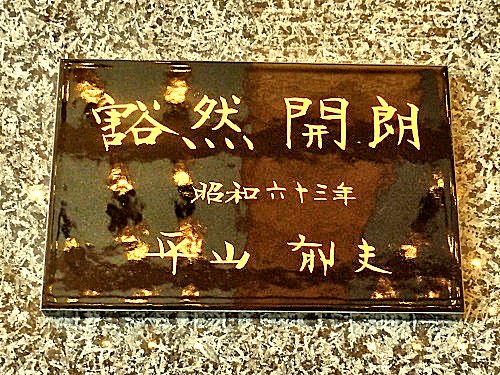 豁然開朗
昭和六十三年
平山郁夫